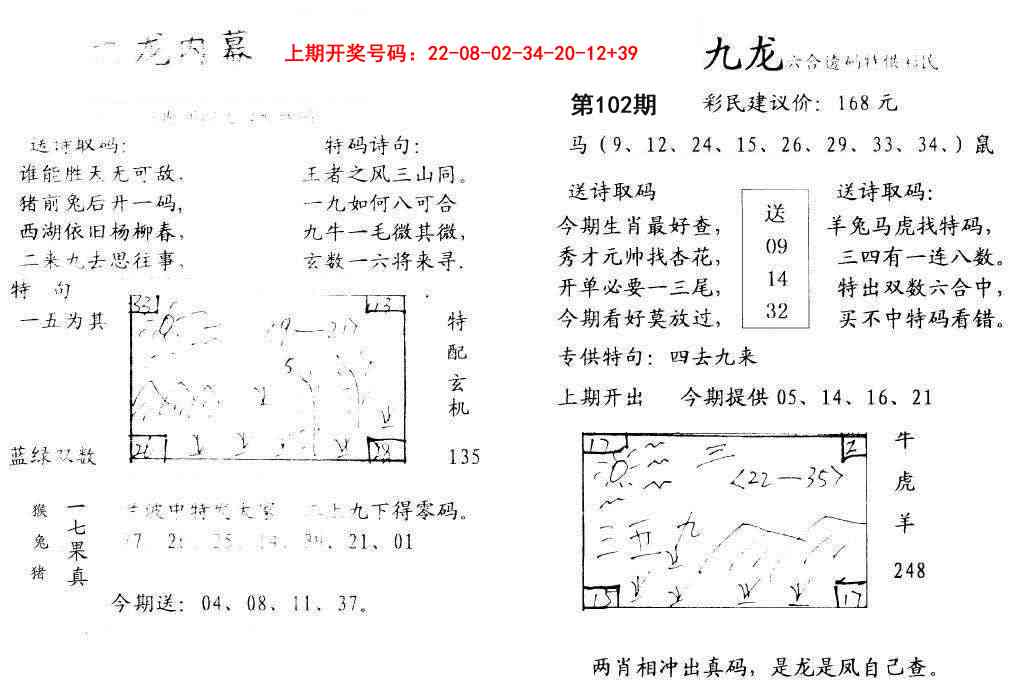 九龙内幕
上期开奖号码：22-08-02-34-20-12+39
送诗取码：
谁能胜天无可敌．
猪前兔后开一码，
西湖依旧杨柳春，
二来九去思往事．
特 句
一五为其
蓝绿双数
特码诗句：
王者之风三山同。
一九如何八可合
九牛一毛微其微，
玄数一六将来寻．
33
13
〈9—21〉
5
26
28
特
配
玄
机
135
猴
兔
猪
一七果真
九下得零码。
21、01
今期送：04、08、11、37。
九龙六合透码特供彩民
第102期
彩民建议价：168元
马（9、12、24、15、26、29、33、34、）鼠
送诗取码
今期生肖最好查，
秀才元帅找杏花，
开单必要一三尾，
今期看好莫放过，
送
09
14
32
送诗取码：
羊兔马虎找特码，
三四有一连八数。
特出双数六合中，
买不中特码看错。
专供特句：四去九来
上期开出 今期提供05、14、16、21
17
2
三
〈22—35〉
三五九
15
17
牛
虎
羊
248
两肖相冲出真码，是龙是凤自己查。